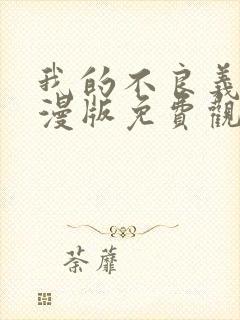 我的不良義
漫版免費觀
荼蘼